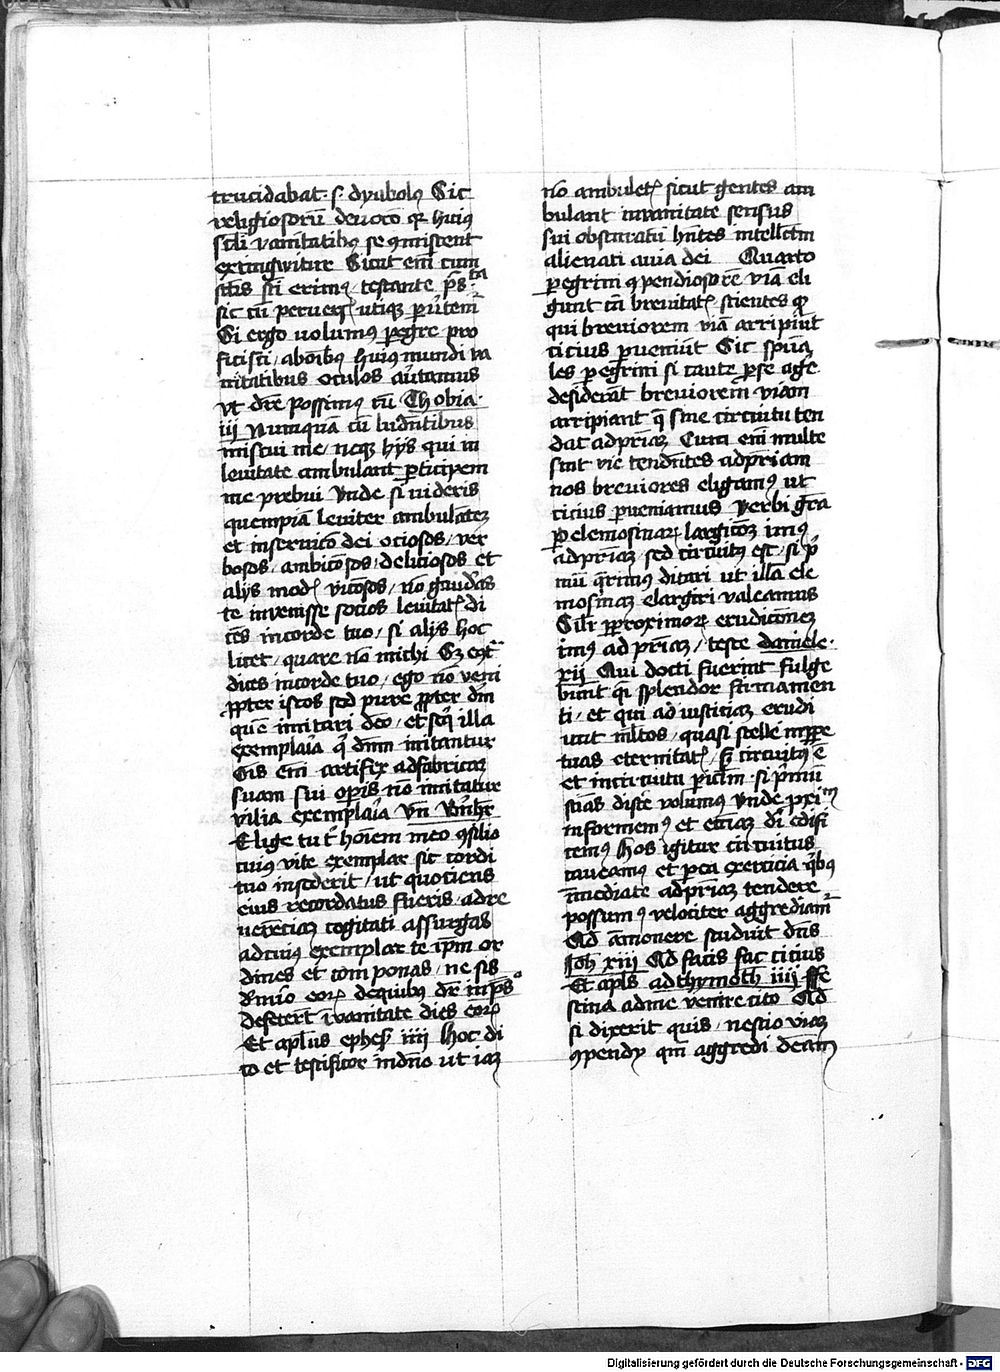 trucidabat .s. dyabolus Sic
religiosorum deuotio quia huius
seculi vanitatibus se commiscent
extingwitur Sicut enim cum
sanctis sancti erimus / testante ps. ta
sic cum peruersis / utique peruertemur
Si ergo uolumus peregre pro
ficisci / ab omnibus huius mundi va
nitatibus oculos auertamus
vt dicere possimus cum Thobia
iij Numquam cum ludentibus
miscui me / neque hys qui in
leuitate ambulant participem
me prebui Vnde si uideris
quempiam leuiter ambulantem
et in seruicio dei ociosos / ver
bosos / ambiciosos / deliciosos et
alijs modis viciosos / non gaudeas
te inuenisse socios leuitatis di
cens in corde tuo / si alijs hoc
licet / quare non michi Sed
dices in corde tuo / ego non veni
propter istos sed pure propter deum
quem imitari debeo / et sequi illa
exemplaria que deum imitantur
Omnis enim artifex ad fabricam
suam sui operis non imitatur
vilia exemplaria Vnde Bernhardus
Elige tibi hominem meo consilio
cuius vite exemplar sic cordi
tuo insederit / ut quotiens
eius recordatus fueris / ad re
uerentiam cogitati assurgas
ad cuius exemplar te ipsum or
dines et componas / ne sis
de numero eorum de quibus dicitur in ps.
Defecerunt in vanitate dies eorum
Et apostolus ephes. iiij Hoc di
co et testificor in domino ut iam
non ambuletis sicut gentes am
bulant in vanitate sensus
sui obscuratum habentes intellectum
alienati a via dei Quarto
peregrini compendiosiorem viam eli
gunt causa breuitatis / scientes quod
qui breuiorem viam arripiunt
cicius perueniunt Sic spiritua
les peregrini si caute per se agere
desiderant breuiorem viam
arripiant que sine circuitu ten
dat ad patriam Cum enim multe
sint vie tendentes ad patriam
nos breuiores eligamus ut
cicius perueniamus Verbi gratia
per elemosinarum largicionem imus
ad patriam sed circuitus est / si pri
mum querimus ditari ut illam ele
mosinam elargiri valeamus
Similiter per proximorum erudicionem
imus ad patriam / teste daniele
xij Qui docti fuerint fulge
bunt quasi splendor firmamen
ti / et qui ad iusticiam erudi
unt multos / quasi stelle in perpe
tuas eternitates / sed circuitus est
et in circuitu periculum / si primum
scientias discere volumus Vnde proximum
informemus et etiam domini edifi
cemus Hos igitur circuitus
caueamus et per ea exercicia quibus
inmediate ad patriam tendere
possumus velociter aggrediamur
Ad ammonere studuit dominus
Joh. xiii Quod facis fac cicius
Et apostolus ad thymoth. iiij Fe
stina ad me venire cito Quod
si dixerit quis / nescio viam
compendij quam aggredi debeam